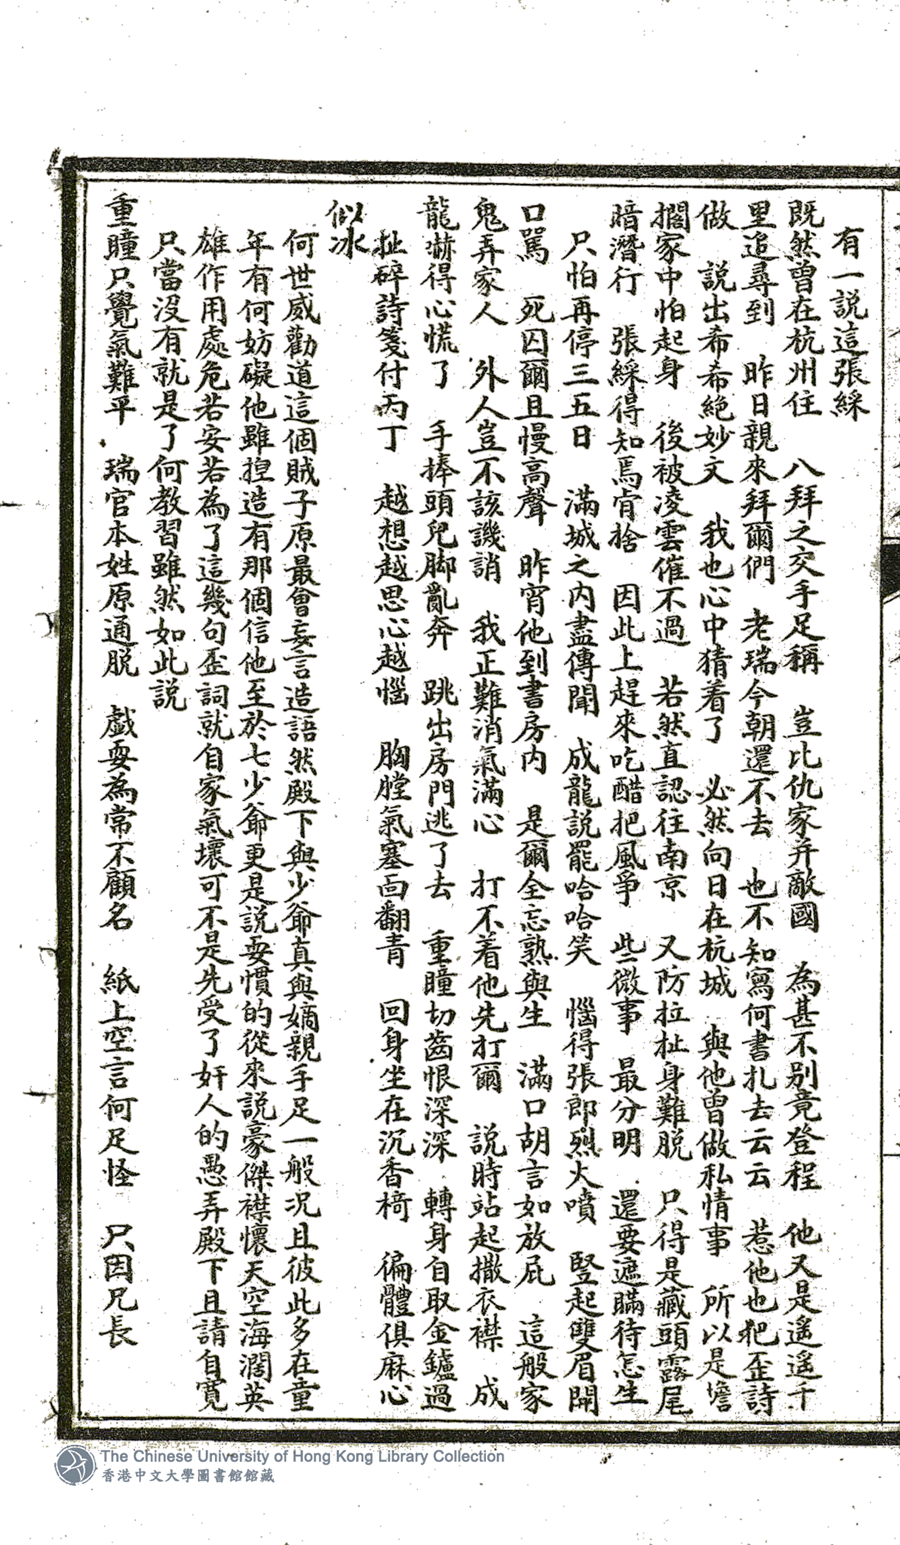 有一說這張綵
既然曾在杭州住　八拜之交手足稱　豈比仇家并敵國　為甚不别竟登程　他又是遙遙千
里追尋到　昨日親來拜爾們　老瑞今朝還不去　也不知寫何書扎去云云　惹他也把歪詩
做　說出希希絕妙文　我也心中猜着了　必然向日在杭城　與他曾做私情事　所以是
擱家中怕起身　後被凌雲催不過　若然直認往南京　又防拉扯身難脫　只得是藏頭露尾
暗潛行　張綵得知焉肯捨　因此上趕來吃醋把風爭　些微事　最分明　還要遮瞞待怎生
只怕再停三五日　滿城之内盡傳聞　成龍説罷哈哈笑　惱得張郎烈火噴　竪起雙眉開
口罵　死囚爾且慢高聲　昨宵他到書房内　是爾全忘熟與生　滿口胡言如放屁　這般家
鬼弄家人　外人豈不該譏誚　我正難消氣滿心　打不着他先打爾　說時站起撒衣襟　成
龍嚇得心慌了　手捧頭兒脚亂奔　跳出房門逃了去　重瞳切齒恨深深　轉身自取金鑪過
扯碎詩箋付丙丁　越想越思心越惱　胸膛氣塞面翻青　回身坐在沉香椅　徧體俱麻心
似冰
何世威勸道這個賊子原最會妄言造語然殿下與少爺真與嫡親手足一般況且彼此多在童
年有何妨礙他雖揑造有那個信他至於七少爺更是説耍慣的從來説豪傑襟懷天空海濶英
雄作用處危若安若為了這幾句歪詞就自家氣壞可不是先受了奸人的愚弄殿下且請自寬
只當沒有就是了何教習雖然如此説
重瞳只覺氣難平　瑞官本姓原通脱　戲耍為常不顧名　紙上空言何足怪　只因兄長
The Chinese University of Hong Kong Library Collection
香港中文大學圖書館館藏